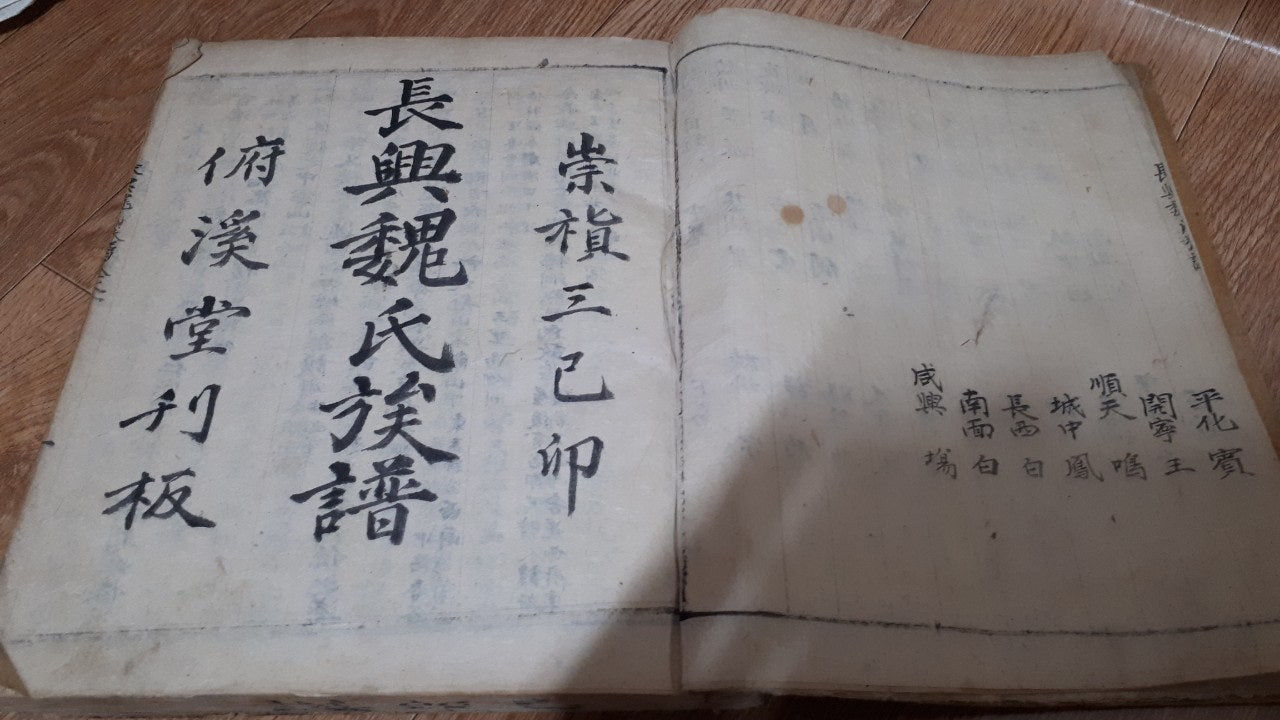 崇禎三己卯
長興魏氏族譜
俯溪堂刊板
平化 賓
開寧 王
順天 鳴
城中 鳳
長西 白
南面 白
咸興 場